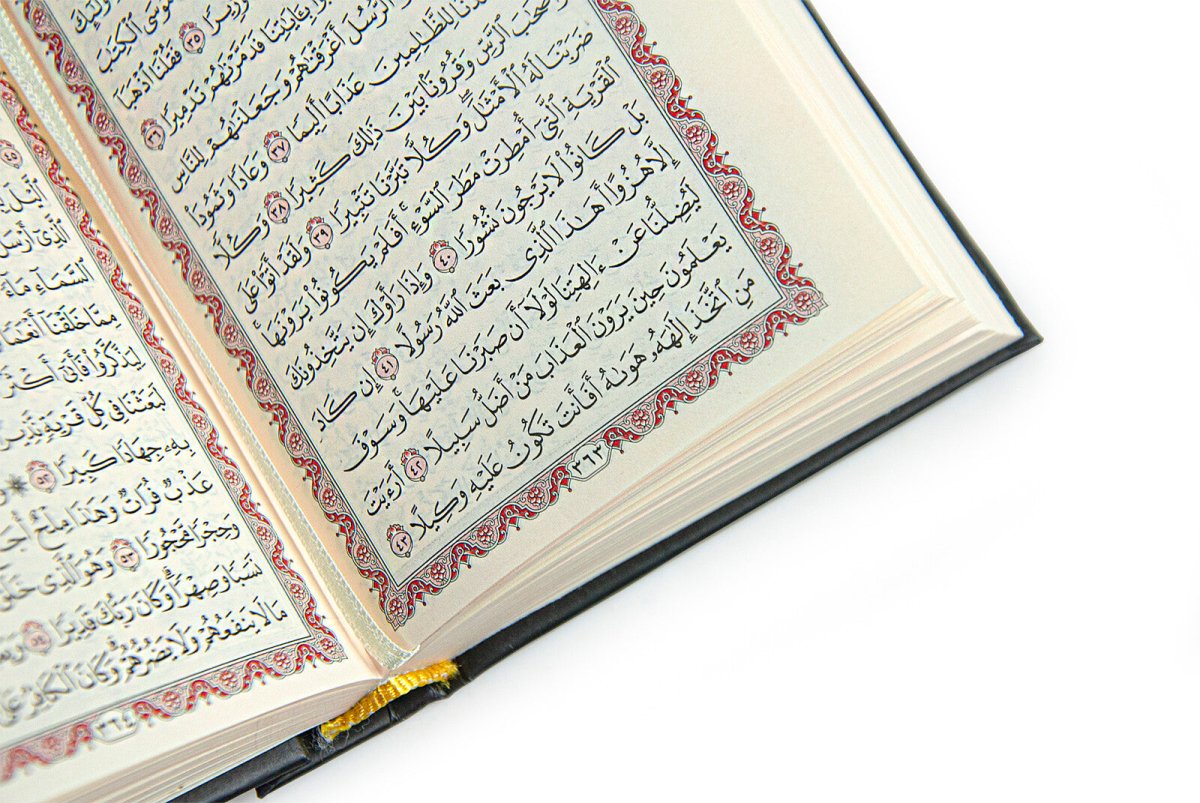 مُوسَى ٱلْكِتَٰبَ
وَزِيرًا ٣٥ فَقُلْنَا ٱذْهَبَآ
بِـَٔايَٰتِنَا فَدَمَّرْنَٰهُمْ تَدْمِيرًا ٣٦
ٱلرُّسُلَ أَغْرَقْنَٰهُمْ وَجَعَلْنَٰهُمْ لِلنَّاسِ
لِلظَّٰلِمِينَ عَذَابًا أَلِيمًا ٣٧ وَعَادًا وَثَمُودَا۟
وَأَصْحَٰبَ ٱلرَّسِّ وَقُرُونًۢا بَيْنَ ذَٰلِكَ كَثِيرًا ٣٨ وَكُلًّا
ضَرَبْنَا لَهُ ٱلْأَمْثَٰلَ ۖ وَكُلًّا تَبَّرْنَا تَتْبِيرًا ٣٩ وَلَقَدْ أَتَوْا۟ عَلَى
ٱلْقَرْيَةِ ٱلَّتِىٓ أُمْطِرَتْ مَطَرَ ٱلسَّوْءِ ۚ أَفَلَمْ يَكُونُوا۟ يَرَوْنَهَا ۚ
بَلْ كَانُوا۟ لَا يَرْجُونَ نُشُورًا ٤٠ وَإِذَا رَأَوْكَ إِن يَتَّخِذُونَكَ
إِلَّا هُزُوًا أَهَٰذَا ٱلَّذِى بَعَثَ ٱللَّهُ رَسُولًا ٤١ إِن كَادَ
لَيُضِلُّنَا عَنْ ءَالِهَتِنَا لَوْلَآ أَن صَبَرْنَا عَلَيْهَا ۚ وَسَوْفَ
يَعْلَمُونَ حِينَ يَرَوْنَ ٱلْعَذَابَ مَنْ أَضَلُّ سَبِيلًا ٤٢ أَرَءَيْتَ
مَنِ ٱتَّخَذَ إِلَٰهَهُۥ هَوَىٰهُ أَفَأَنتَ تَكُونُ عَلَيْهِ وَكِيلًا ٤٣
٣٦٣
ٱلَّذِىٓ أَرْسَلَ
ٱلسَّمَآءِ مَآءً
مِمَّا خَلَقْنَآ أَنْعَٰمًا
لِيَذَّكَّرُوا۟ فَأَبَىٰٓ أَكْثَرُ
لَبَعَثْنَا فِى كُلِّ قَرْيَةٍ نَّذِيرًا
بِهِۦ جِهَادًا كَبِيرًا ٥٢ ۞
عَذْبٌ فُرَاتٌ وَهَٰذَا مِلْحٌ أُجَاجٌ
وَحِجْرًا مَّحْجُورًا ٥٣ وَهُوَ ٱلَّذِى خَلَقَ
نَسَبًا وَصِهْرًا ۗ وَكَانَ رَبُّكَ قَدِيرًا ٥٤
مَا لَا يَنفَعُهُمْ وَلَا يَضُرُّهُمْ ۗ وَكَانَ ٱلْكَافِرُ عَلَىٰ
٣٦٤